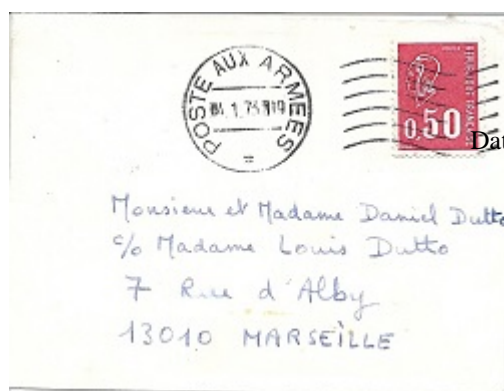 POSTE AUX ARMEES
0,50
REPUBLIQUE FRANCAISE
Dat
Monsieur et Madame Daniel Dutto
c/o Madame Louis Dutto
7 Rue d'Alby
13010 MARSEÏLLE